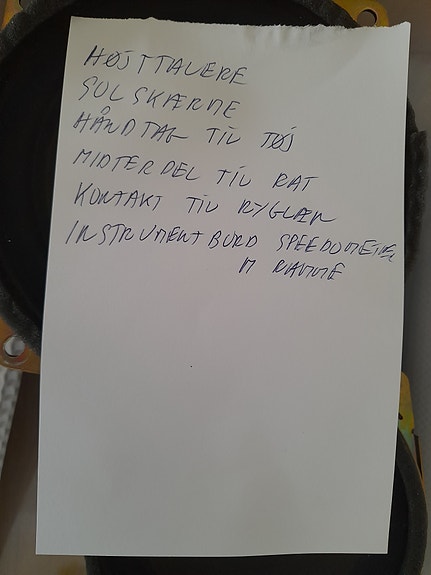 HØJTTALERE
SOLSKÆRME
HÅNDTAG TIL TØJ
MIDTERDEL TIL RAT
KONTAKT TIL RYGLÆN
INSTRUMENTBORD SPEEDOMETER
M RAMME